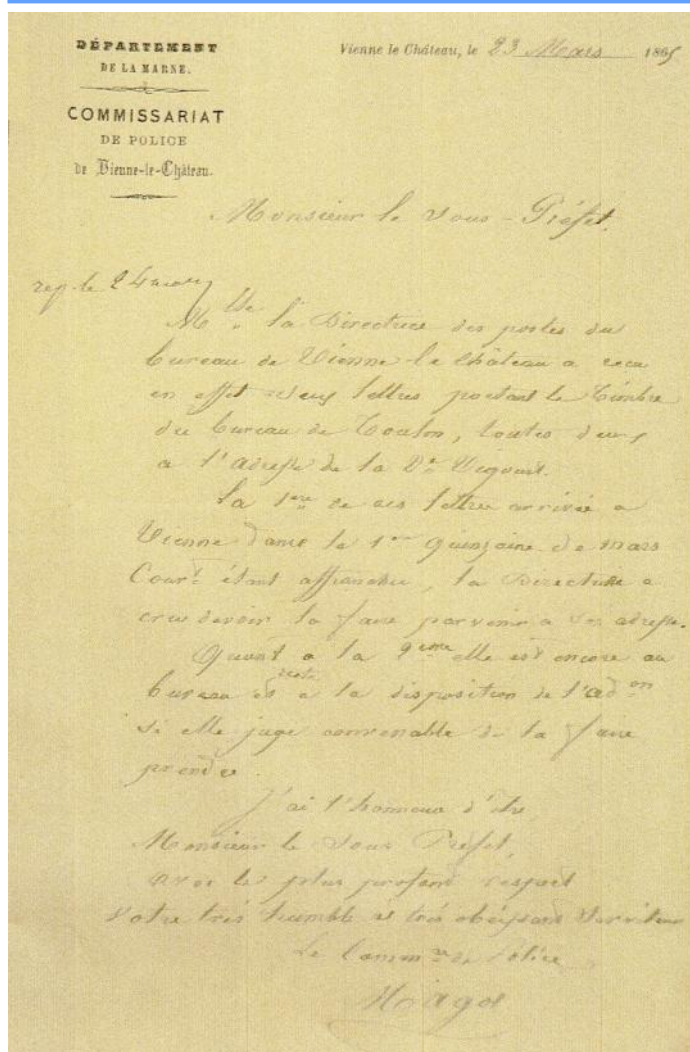 DÉPARTEMENT
DE LA MARNE.
COMMISSARIAT
DE POLICE
de Vienne-le-Château.
Vienne le Château, le 23 Mars 1865
Monsieur le Sous-Préfet.
rep. le 24 mars
Melle la Directrice des postes du
bureau de Vienne-le-Château a reçu
en effet deux lettres portant le Timbre
du bureau de Toulon, toutes deux
a l'adresse de la Ve
La 1ere de ces lettres arrivée a
Vienne dans la 1ere quinzaine de mars
Cour.t étant affranchie, la Directrice a
cru devoir la faire parvenir a son adresse.
Quant a la 2eme elle est encore au
bureau et reste a la disposition de l'adon
si elle juge convenable de la faire
prendre.
J'ai l'honneur d'être,
Monsieur le Sous Préfet,
avec le plus profond respect
Votre très humble et très obéissant Serviteur
Le Commre de Police